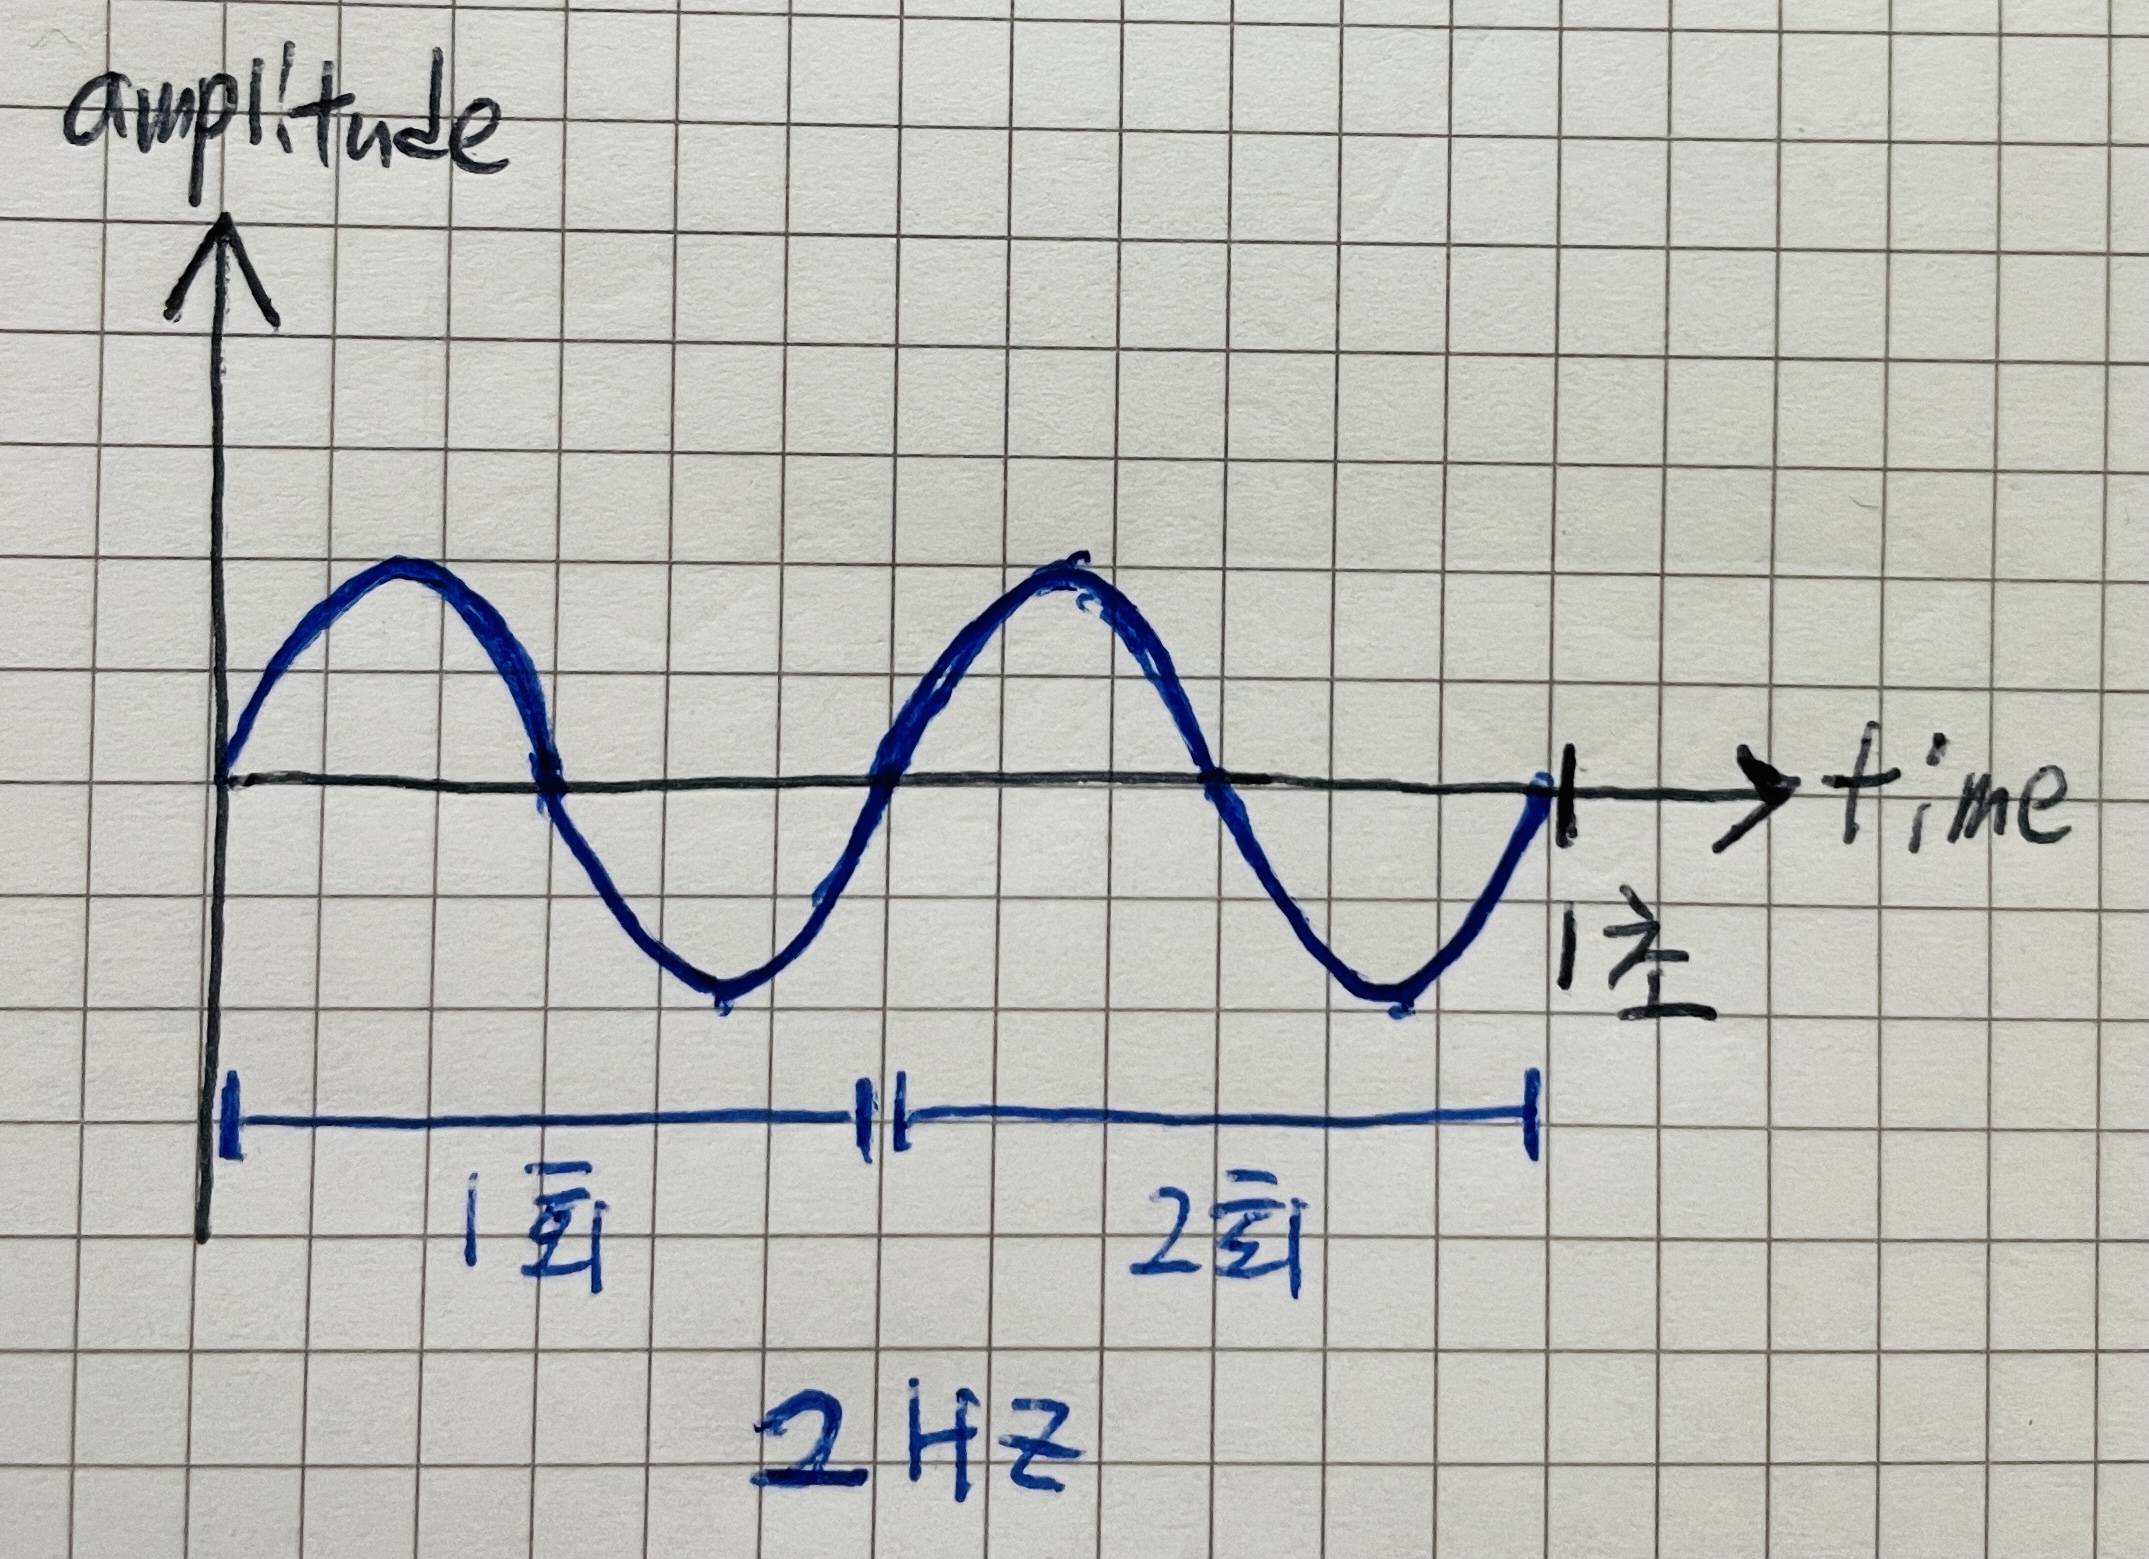 amplitude
time
1초
1회
2회
2Hz